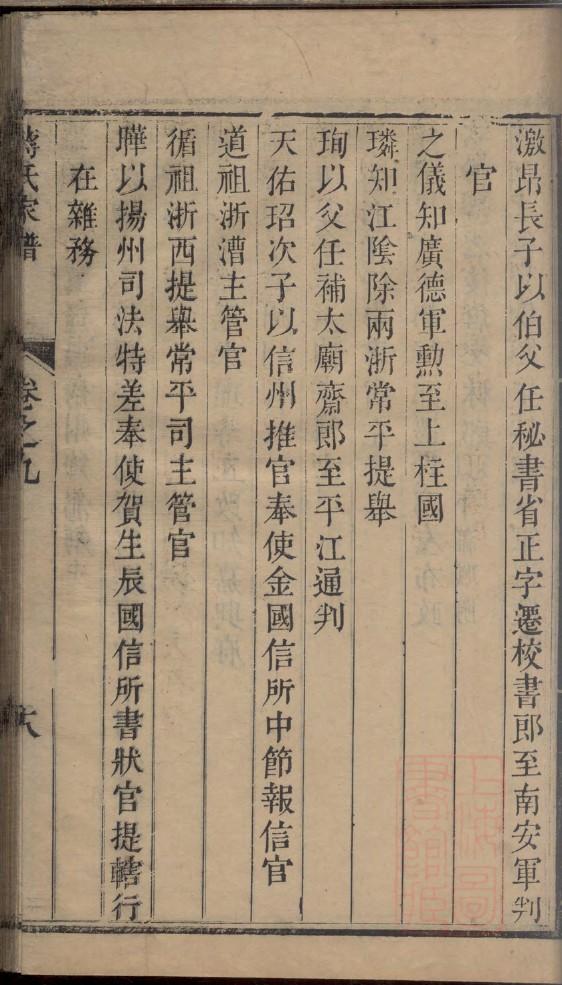 激昂長子以伯父任秘書省正字遷校書郎至南安軍判
官
之儀知廣德軍勲至上柱國
璘知江陰除兩浙常平提舉
珣以父任補太廟齋郎至平江通判
天佑玿次子以信州推官奉使金國信所中節報信官
道祖浙漕主管官
循祖浙西提舉常平司主管官
曄以揚州司法特差奉使賀生辰國信所書狀官提轄行
在雜務
蔣氏家譜
卷之九
六
上海圖書館